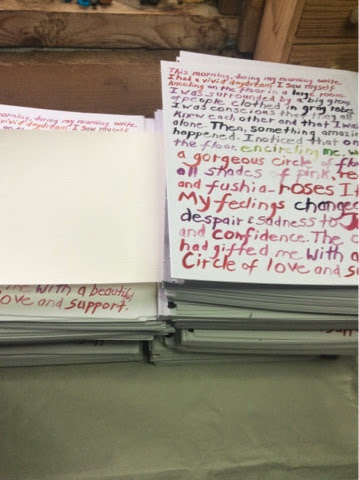 This morning, during my morning write
I had a vivid daydream. I saw myself
kneeling on the floor in a large room.
I was surrounded by a big group
of people clothed in gray robes
I was conscious that they all
knew each other and that I was
alone. Then, something amazi
happened. I noticed that on
the floor, encircling me, w
a gorgeous circle of flo
all shades of pink, re
and fushia-roses I
My feelings changed
despair & sadness to
and confidence. The
had gifted me with a
Circle of love and s
morning, during my morning write
a vivid daydream. I saw myself
me with a beautiful
love and support.